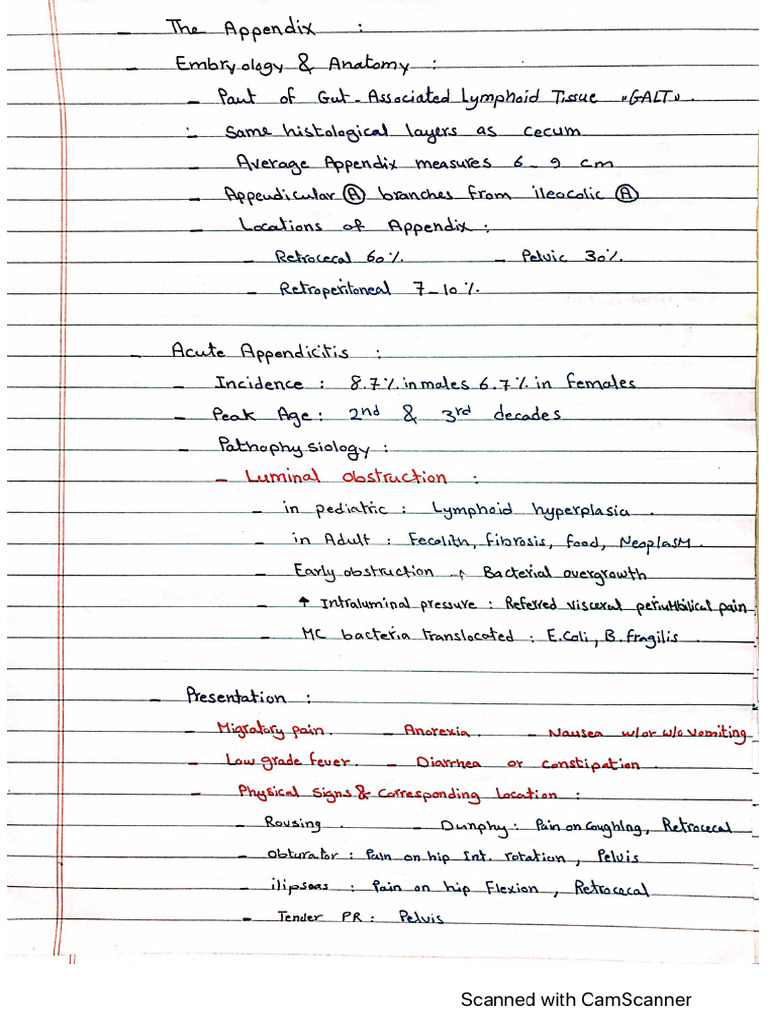 - The Appendix :
- Embryology & Anatomy :
- Part of Gut-Associated Lymphoid Tissue «GALT».
- Same histological layers as cecum
- Average Appendix measures 6-9 cm
- Appendicular Ⓐ branches from ileocolic Ⓐ
- Locations of Appendix :
- Retrocecal 60% - Pelvic 30%.
- Retroperitoneal 7-10%.
- Acute Appendicitis :
- Incidence : 8.7% in males 6.7% in females
- Peak Age : 2nd & 3rd decades
- Pathophysiology :
- Luminal obstruction :
- in pediatric : Lymphoid hyperplasia .
- in Adult : Fecolith, fibrosis, food, Neoplasm.
- Early obstruction Bacterial overgrowth
- ↑ Intraluminal pressure : Referred visceral periumbilical pain
- MC bacteria translocated : E.Coli, B.fragilis .
- Presentation :
- Migratory pain. - Anorexia . - Nausea w/or w/o vomiting
- Low grade fever. - Diarrhea or constipation .
- Physical Signs & Corresponding Location :
- Rovsing . - Dunphy : Pain on Coughing, Retrocecal
- Obturator : Pain on hip Int. rotation, Pelvis
- ilipsoas : Pain on hip Flexion , Retrocecal
- Tender PR : Pelvis
Scanned with CamScanner